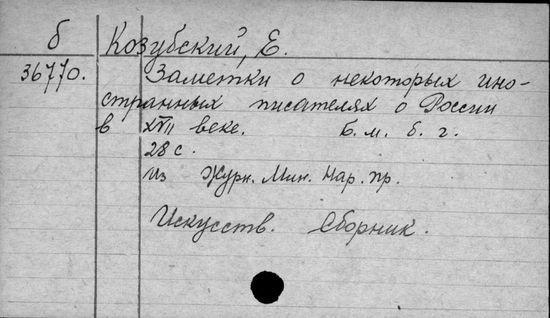 б Козубский, Е.
36770. Заметки о некоторых ино-
странных писателях о России
в XVII веке. Б. м. б. г.
28 с.
из Журн. Мин. Нар. пр.
Искусств. Сборник.